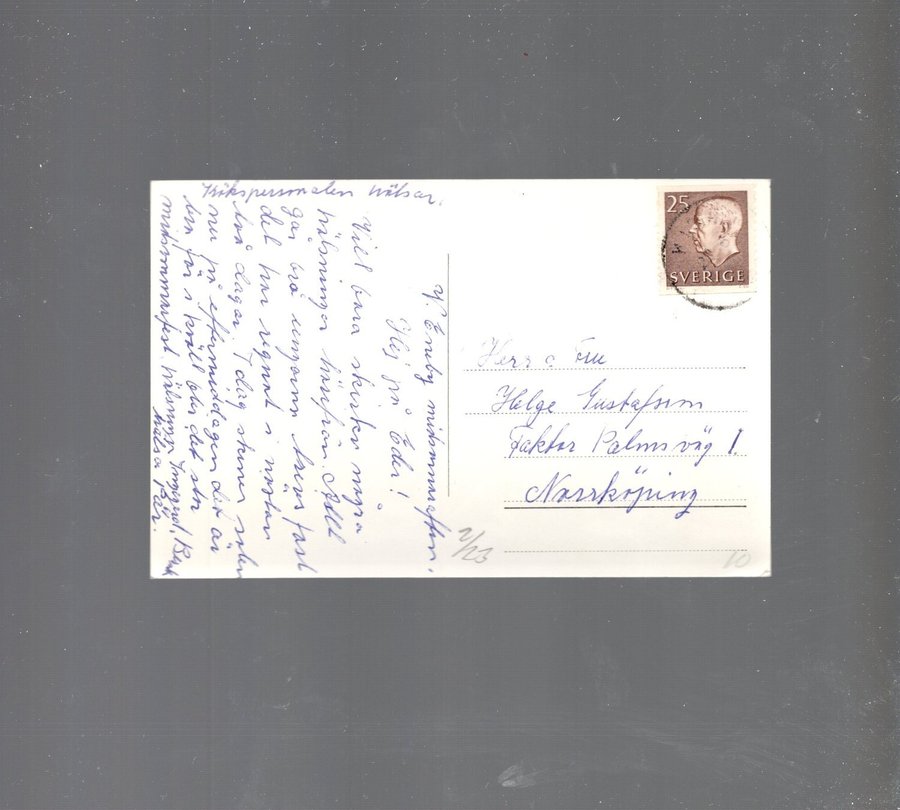 Kökspersonalen hälsar.
V. Eneby midsommarafton.
Hej på Eder!
Vill bara skicka några
hälsningar härifrån. Allt
går bra ungarna trivs fast
det har regnat i nästan
två dagar. I dag skiner solen
nu på eftermiddagen det är
bra för i kväll blir det stor
midsommarfest. hälsningar Ingegerd,
hälsa
25
SVERIGE
Herr o Fru
Helge Gustafsson
Faktor Palmsväg 1.
Norrköping
2/23
10